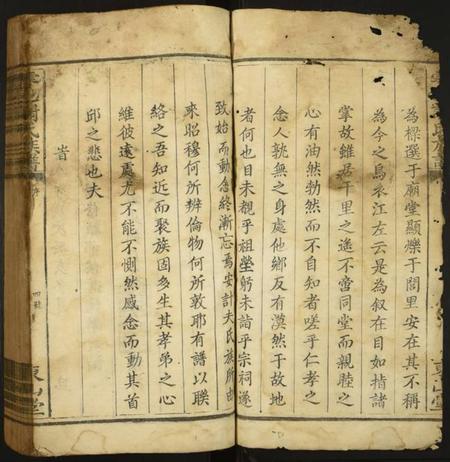 為樑選于廟堂顯爍于閭里安在其不稱
為今之烏衣江左云是為叙在目如指諸
掌故雖居千里之遙不啻同堂而親睦之
心有油然勃然而不自知者嗟乎仁孝之
念人孰無之身處他鄉反有漠然于故地
者何也目未覩乎祖塋躬未詣乎宗祠遂
致始而動念終漸忘焉安計夫氏族所由
來昭穆何所辨倫物何所敦耶有譜以聯
絡之吾知近而聚族固多生其孝弟之心
維彼遠處尤不能不惻然感念而動其首
邱之悲也夫
旹
東山堂
氏族譜
東山堂